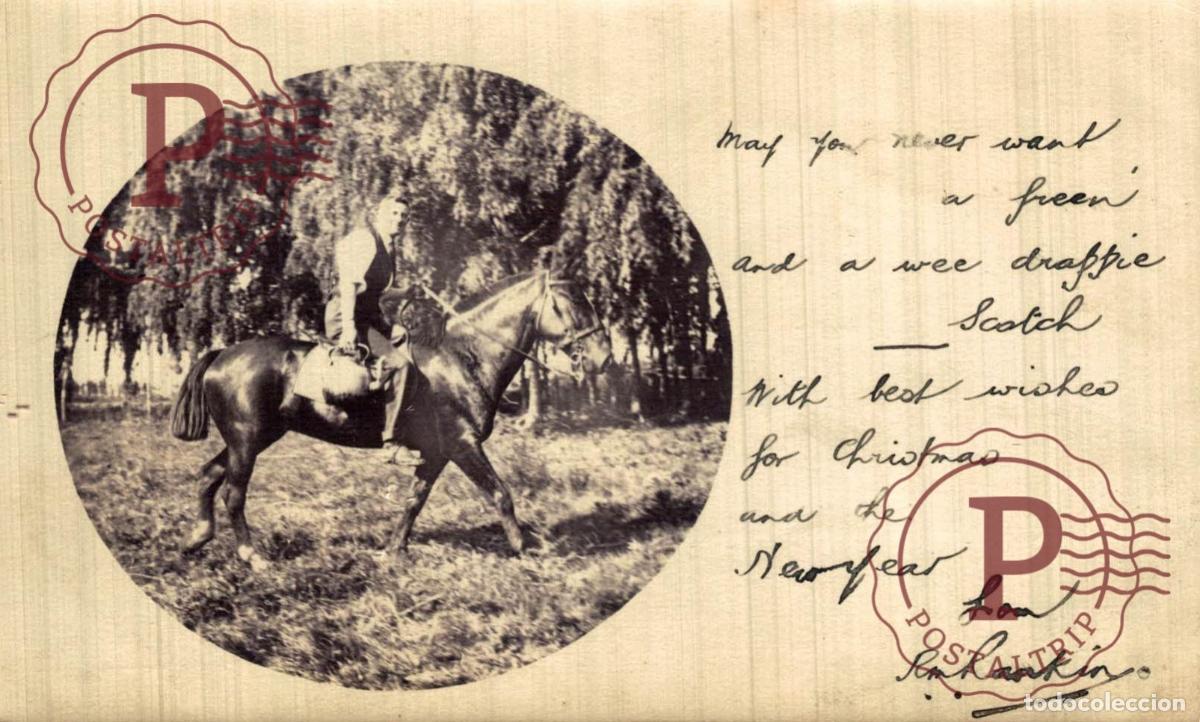 May you never want
a freen'
and a wee drappie
Scotch
With best wishes
for Christmas
and the
New Year
P
POSTALTRIP
P
POSTALTRIP
todocoleccion